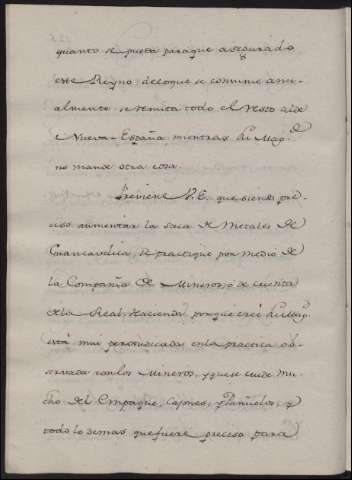 quanto se pueda para que asegurado
este Reyno de loque se consume anu-
almente se remita todo el resto a ese
Nueva-España, mientras su Mag.d
no mande otra cosa.
Previene V.E. que siendo pre-
ciso aumentar la saca de Metales de
Guancavelica, se practique por medio de
la Compañia de Mineros, ó de cuenta
de la Real Hacienda, porque cree su Mag.
está mui perjudicada en la practica ob-
servada con los Mineros, y que se cuide mu-
cho del Empaque, Cajones, y Pañuelos, y
todo lo demas que fuere preciso para